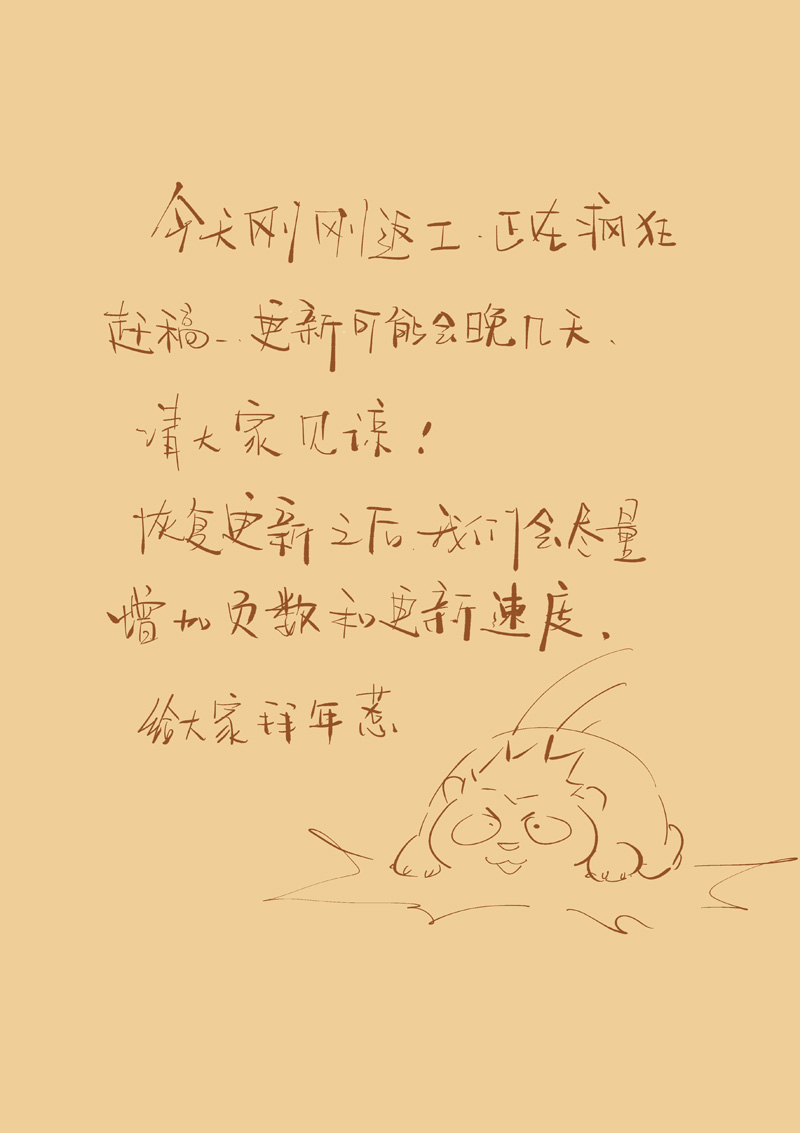 今天刚刚返工.正在疯狂
赶稿_..更新可能会晚几天、
请大家见谅！
恢复更新之后.我们会尽量
增加页数和更新速度.
给大家拜年惹.